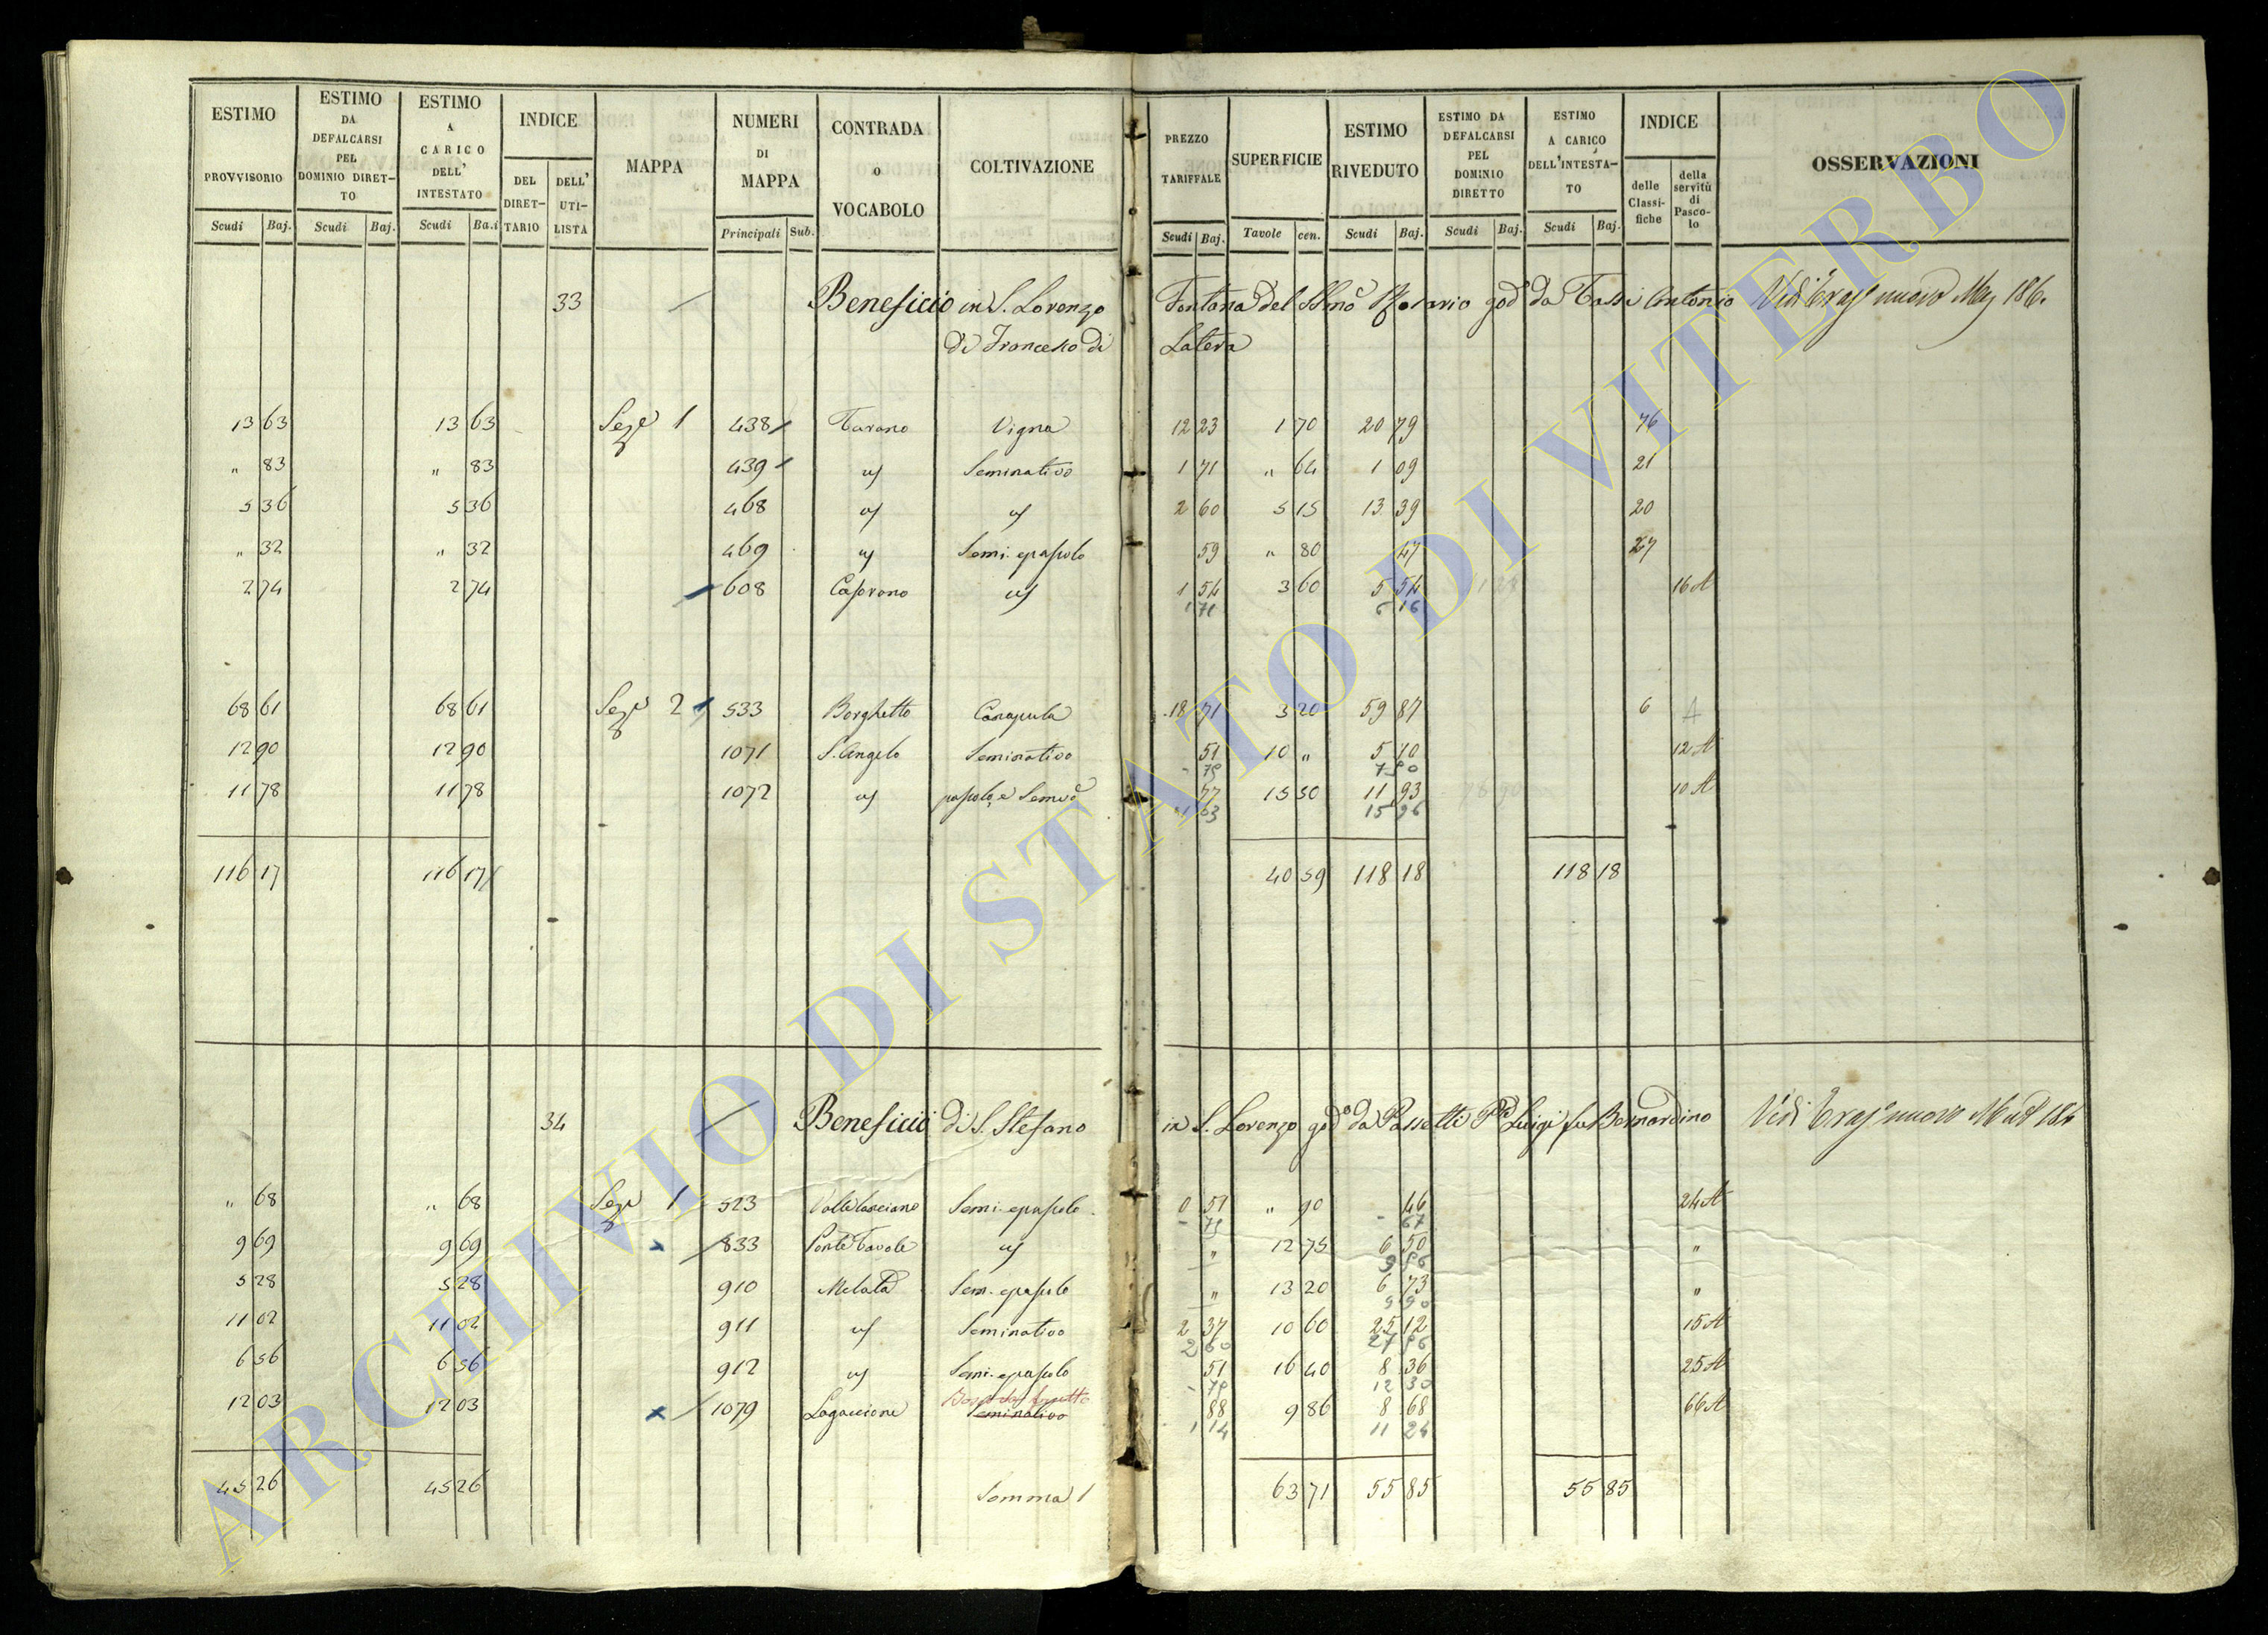 ESTIMO PROVVISORIO Scudi Baj. ESTIMO DA DEFALCARSI PEL DOMINIO DIRET- TO Scudi Baj. ESTIMO A CARICO DELL' INTESTATO Scudi Ba.i INDICE DEL DIRET- TARIO DELL' UTI- LISTA MAPPA NUMERI DI MAPPA Principali Sub. CONTRADA O VOCABOLO COLTIVAZIONE PREZZO TARIFFALE Scudi Baj. SUPERFICIE Tavole cen. ESTIMO RIVEDUTO Scudi Baj. ESTIMO DA DEFALCARSI PEL DOMINIO DIRETTO Scudi Baj. ESTIMO A CARICO DELL'INTESTA- TO Scudi Baj. INDICE delle Classi- fiche della servitù di Pasco- lo OSSERVAZIONI
33 Beneficio in S. Lorenzo Fontana del SSmo Rosario god da Tassi Antonio Vedi nuovo
di Francesco di Latera
13 63 13 63 Seze 1 438 Tarano Vigna 12 23 1 70 20 79 76
" 83 " 83 439 Seminativo 1 71 " 64 1 09 21
5 36 5 36 468 2 60 5 15 13 39 20
" 32 " 32 469 59 " 80 47 27
2 74 2 74 608 1 54 3 60 5 54 16 A
1 71 6 16
68 61 68 61 Seze 2 533 Borghetto Canapula 18 71 3 20 59 87 6 A
12 90 12 90 1071 S. Angelo Seminativo 51 10 " 5 10 12 A
- 79 7 90
11 78 11 78 1072 77 15 50 11 93 10 A
1 03 15 96
116 17 116 17 40 59 118 18 118 18
34 Beneficio di S. Stefano in S. Lorenzo god da Passetti Luigi fu Bernardino Vedi nuovo
" 68 " 68 Seze 1 523 0 51 " 90 46 24 A
- 79 - 67
9 69 9 69 833 " 12 75 6 50 "
5 28 5 28 910 Melata " 13 20 6 73 "
11 02 11 02 911 Seminativo 2 37 10 60 25 12 15 A
2 60
6 56 6 56 912 51 16 40 8 36 25 A
- 79 12 30
12 03 12 03 1079 Lagaccione Seminativo 88 9 86 8 68 66 A
1 14 11 24
45 26 45 26 Somma 63 71 55 85 55 85
ARCHIVIO DI STATO DI VITERBO